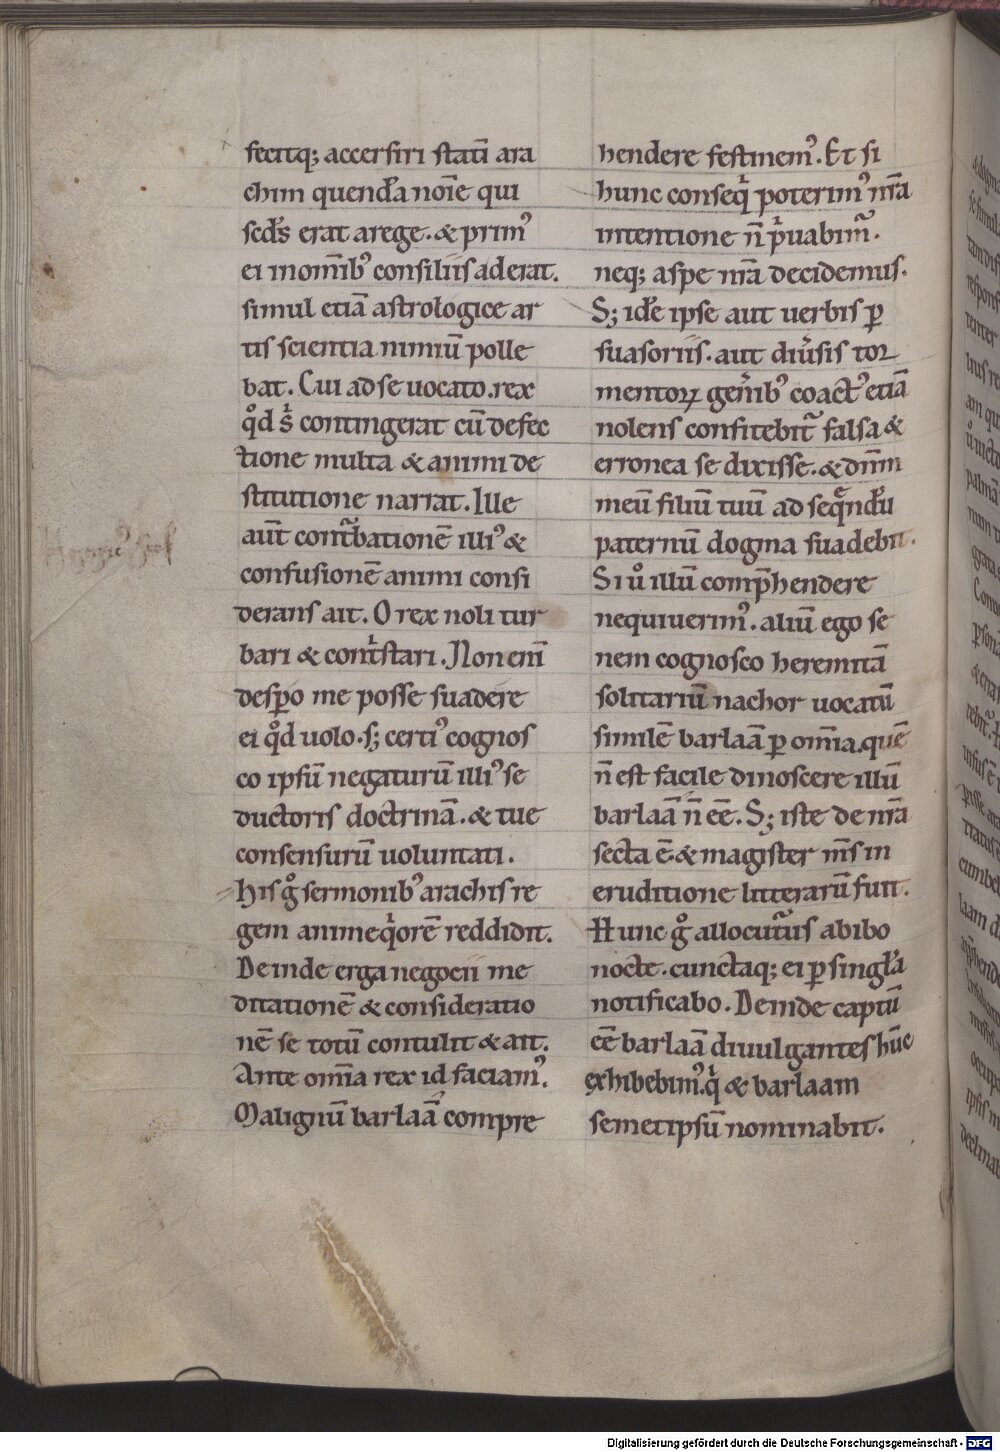 fecitq; accersiri statī ara
chim quendā noīe qui
scds̄ erat a rege. & prim᾿
ei in om̄ib᾿ consiliis aderat.
simul etiā astrologice ar
tis scientia nimiū polle
bat. Cui ad se uocato. rex
qͦd sⁱ contingerat cū defec
tione multa & animi de
stitutione narrat. Ille
aut̄ contᵃbationē illi᾿ &
confusionē animi consi
derans ait. O rex noli tur
bari & contⁱstari. Non eni̅
desꝑo me posse suadere
ei qͦd uolo. s; certi᾿ cognos
co ipsū negaturū illi᾿ se
ductoris doctrinā. & tue
consensurū uoluntati.
His gͦ sermonib᾿ arachis re
gem animeqⁱorē reddidit.
Deinde erga negocii me
ditationē & consideratio
nē se totū contulit & ait.
Ante om̄ia rex id faciam᾿.
Malignū barlaā compre
hendere festinem᾿. Et si
hunc conseqⁱ poterim᾿ nr̄a
intentione n̄ pⁱuabimᷓ.
neq; a spe nr̄a decidemus.
S; idē ipse aut uerbis ꝑ
suasoriis. aut diu̾sis tor
mentoꝝ gen̾ib᾿ coact᾿ etiā
nolens confitebitᷓ falsa &
erronea se dixisse. & dn̄m
meū filiū tuū ad seqᷓndū
paternū dogma suadebit.
Si uͦ illū comp̄hendere
nequiuerim᾿. aliū ego se
nem cognosco heremitā
solitariū nachor uocatū
similē barlaā ꝑ om̄ia. quē
n̄ est facile dinoscere illū
barlaā n̄ eē. S; iste de nr̄a
secta ē. & magister m̄s in
eruditione litterarū fuit.
Hunc gͦ allocutᷓus abibo
nocte. cunctaq; ei ꝑ singl̄a
notificabo. Deinde captū
eē barlaā diuulgantes hūc
exhibebim᾿. qⁱ & barlaam
semetipsū nominabit.
Digitalisierung gefördert durch die Deutsche Forschungsgemeinschaft - DFG